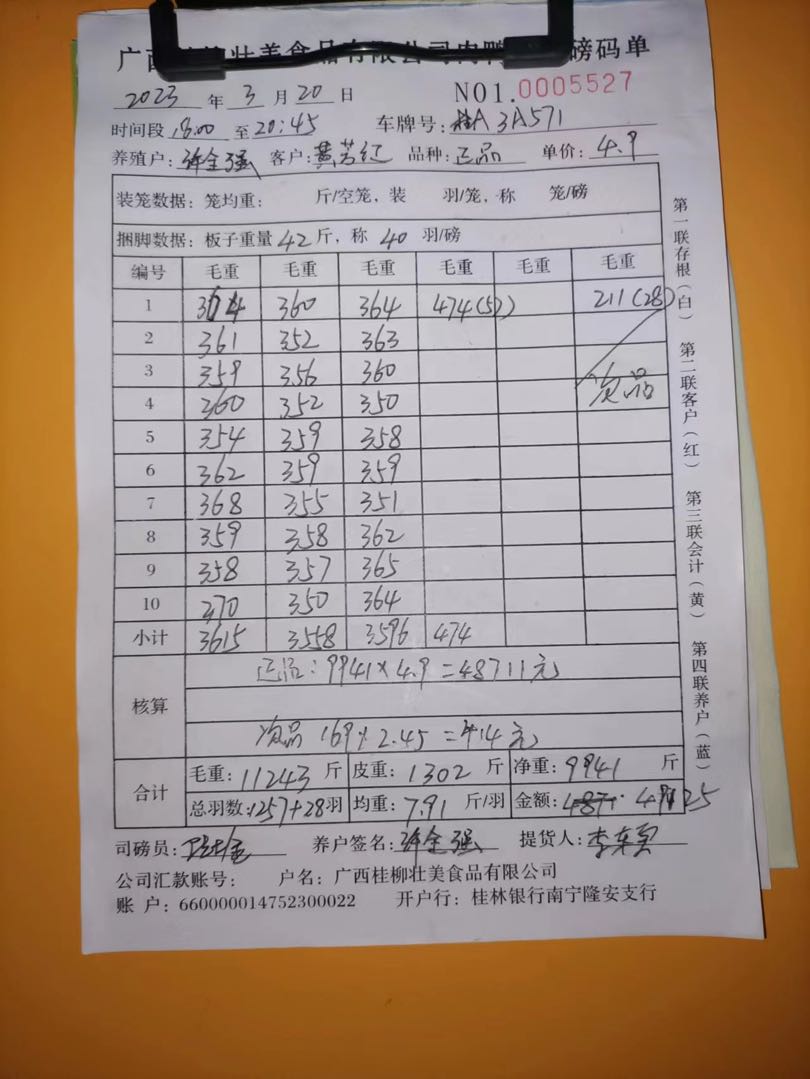 广西桂柳壮美食品有限公司肉鸭 磅码单
2023 年 3 月 20 日 NO1.0005527
时间段 18:00 至 20:45 车牌号: 桂A3A571
养殖户: 许全强 客户: 黄芳红 品种: 正品 单价: 4.9
装笼数据: 笼均重: 斤/空笼, 装 羽/笼, 称 笼/磅
捆脚数据: 板子重量 42 斤, 称 40 羽/磅
编号 毛重 毛重 毛重 毛重 毛重 毛重
1 364 360 364 474(57) 211(28)
2 361 352 363
3 359 356 360 次品
4 360 352 350
5 354 359 358
6 362 359 359
7 368 355 351
8 359 358 362
9 358 357 365
10 370 350 364
小计 3615 3558 3596 474
核算
正品: 9941×4.9=48711元
次品 169×2.45=414元
合计
毛重: 11243 斤 皮重: 1302 斤 净重: 9941 斤
总羽数: 1257+28 羽 均重: 7.91 斤/羽 金额: 49125
司磅员: 养户签名: 许全强 提货人:
公司汇款账号: 户名: 广西桂柳壮美食品有限公司
账 户: 660000014752300022 开户行: 桂林银行南宁隆安支行
第一联存根(白) 第二联客户(红) 第三联会计(黄) 第四联养户(蓝)